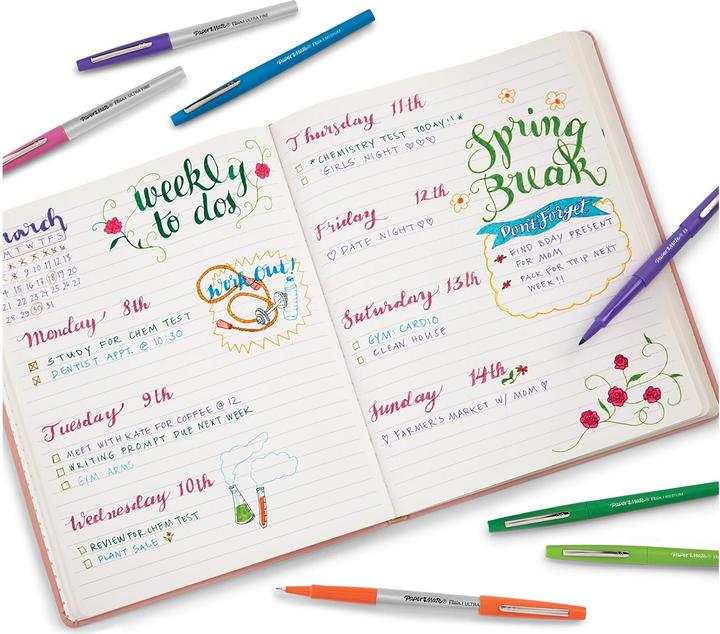 Paper Mate® Flair. | ULTRA FINE
Paper Mate® Flair. | MEDIUM
Paper Mate® Flair. | ULTRA FINE
weekly
to dos
M T W T F S
9 10 11 12 13
21 22 23 24 25 26 27
28 29 30 31
Monday 8th
STUDY FOR CHEM TEST
DENTIST APPT. @ 10:30
Work Out!
Tuesday 9th
MEET WITH KATE FOR COFFEE @ 12
WRITING PROMPT DUE NEXT WEEK
GYM: ARMS
Wednesday 10th
REVIEW FOR CHEM TEST
PLANT SALE
Thursday 11th
*CHEMISTRY TEST TODAY!!*
GIRLS' NIGHT ♡♡♡
Friday 12th
♡ DATE NIGHT ♡♡
Saturday 13th
GYM: CARDIO
CLEAN HOUSE
Sunday 14th
♡ FARMER'S MARKET W/ MOM ♡
Spring
Break
Don't Forget
FIND BDAY PRESENT
FOR MOM
PACK FOR TRIP NEXT
WEEK!!
Paper Mate® Flair.
Paper Mate® Flair. | MEDIUM
Paper Mate® Flair.
Paper Mate® Flair. | ULTRA